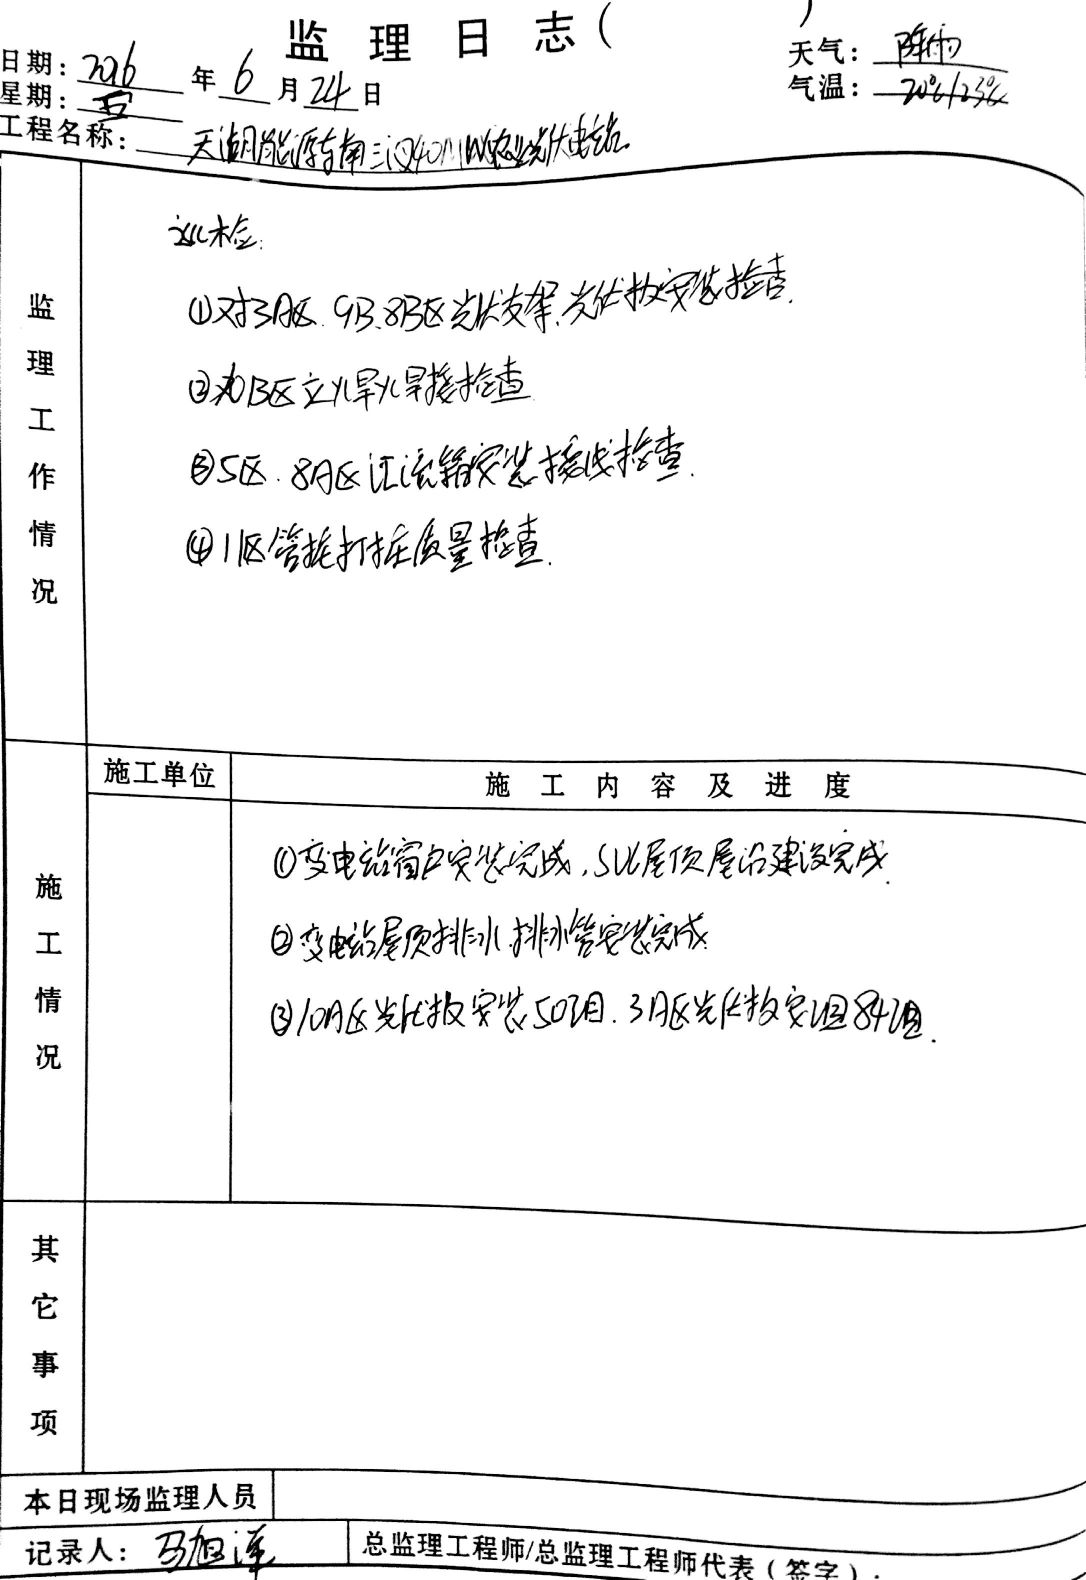 监理日志（ ）
日期：2016年6月24日 天气：阵雨
星期：五 气温：20℃/23℃
工程名称：天湖能源寿南三汊40MW农业光伏电站
监理工作情况
巡检：
①对3A区、9B、8B区光伏支架、光伏板安装检查.
②10B区立焊焊接检查
③5区、8A区汇流箱安装接线检查.
④11区管桩打桩质量检查.
施工单位 施工内容及进度
施工情况
①变电站窗户安装完成,SVG屋顶屋沿建设完成.
②变电站屋顶排水、排水管安装完成.
③10A区光伏板安装50组、3A区光伏板安组84组.
其它事项
本日现场监理人员
记录人：马旭 总监理工程师/总监理工程师代表（签字）：